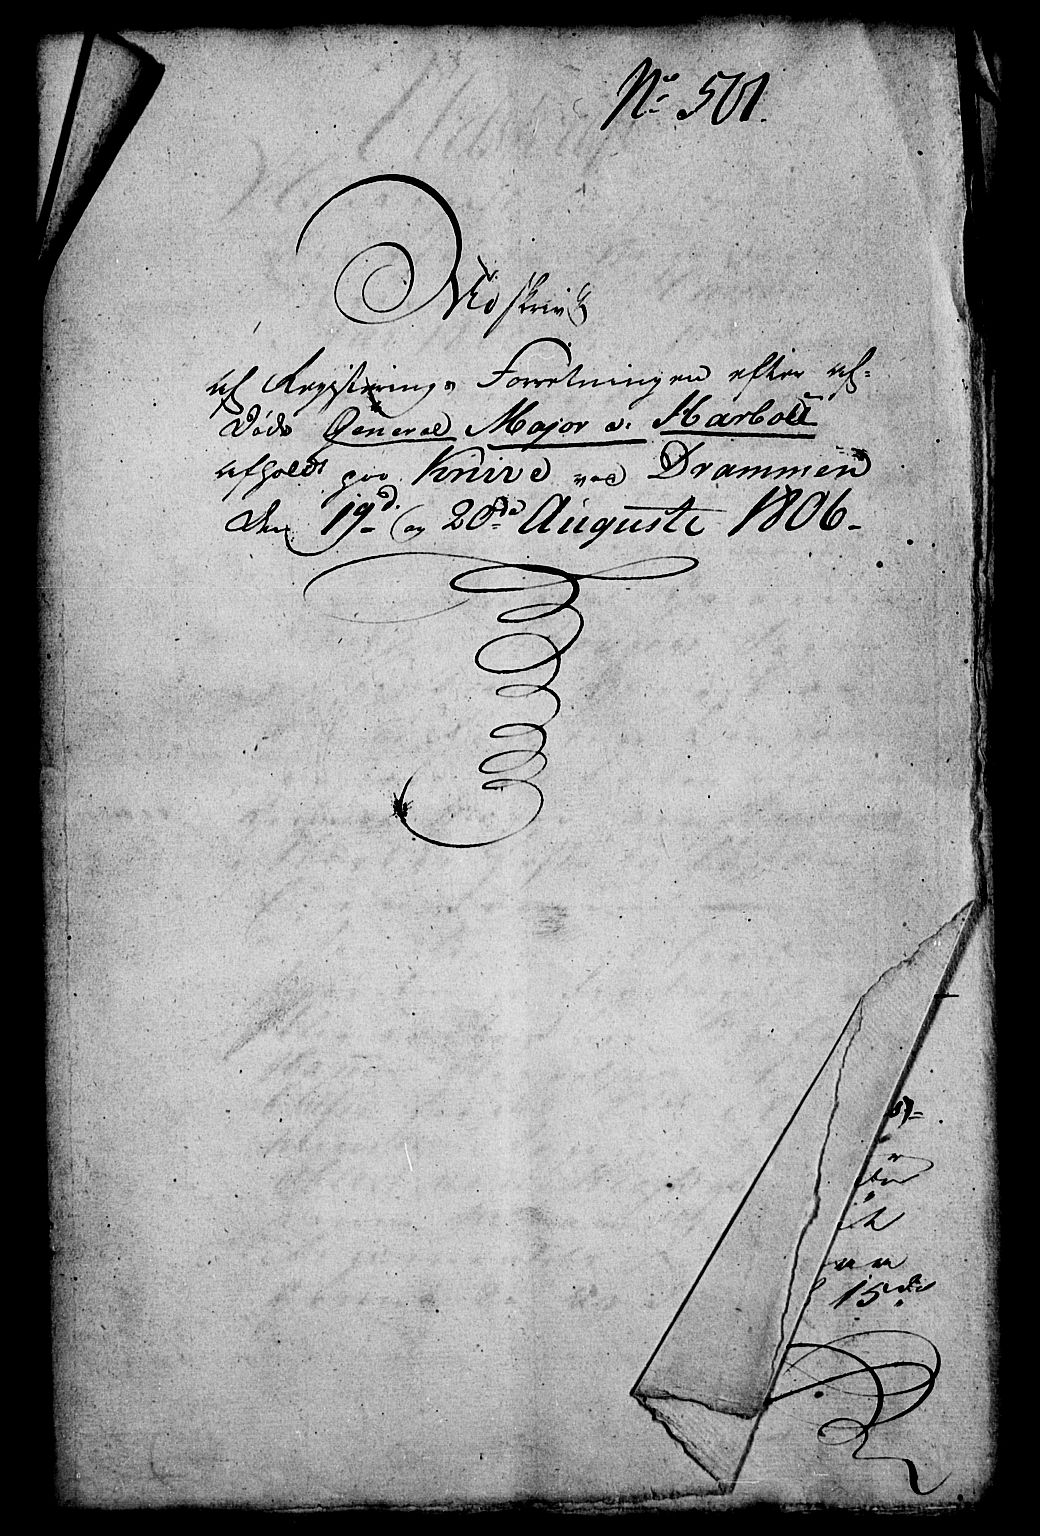 No 501.
Udskrivt
af Registerings Forretningen efter af-
døde General Major v. Harboü
afholdt paa Knive ved Drammen
den 19d. og 20de Auguste 1806.
15de